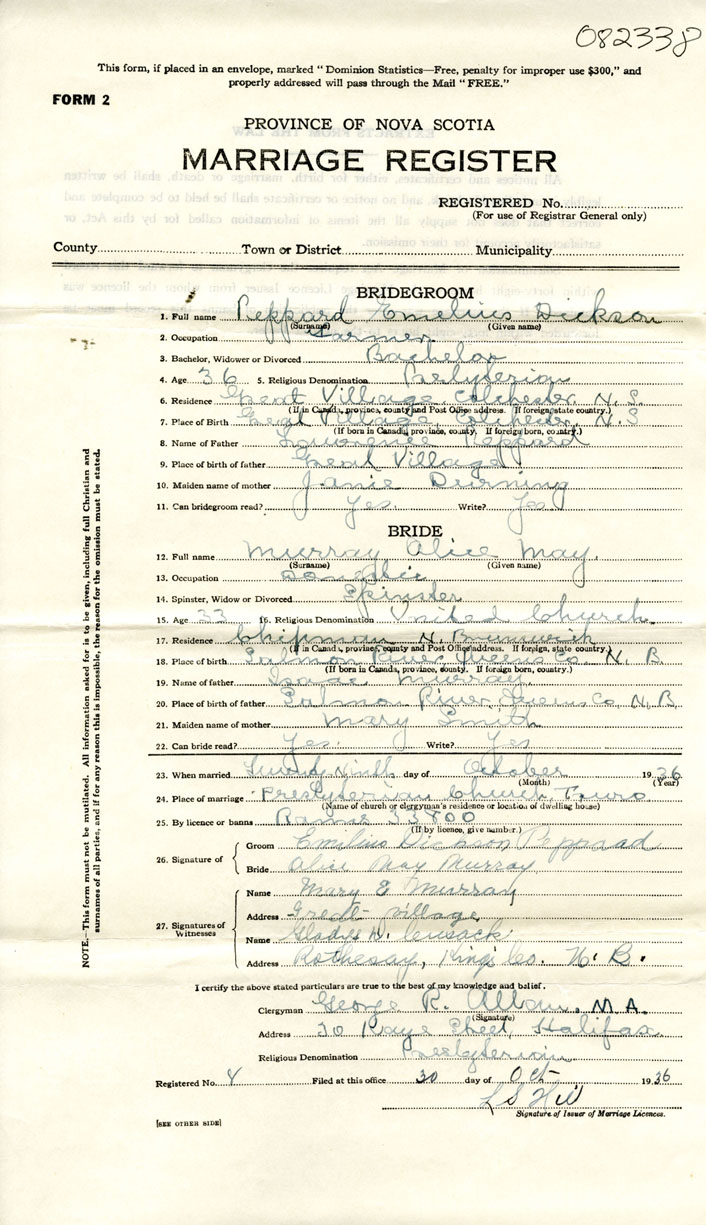 082338
This form, if placed in an envelope, marked "Dominion Statistics—Free, penalty for improper use $300," and
properly addressed will pass through the Mail "FREE."
FORM 2
PROVINCE OF NOVA SCOTIA
MARRIAGE REGISTER
REGISTERED No.
(For use of Registrar General only)
County Town or District Municipality
BRIDEGROOM
1. Full name Peppard Emelius Dickson
(Surname) (Given name)
2. Occupation Farmer
3. Bachelor, Widower or Divorced Bachelor
4. Age 36 5. Religious Denomination Presbyterian
6. Residence Great Village Colchester N. S.
(If in Canada, province, county and Post Office address. If foreign, state country.)
7. Place of Birth Great Village, N. S
(If born in Canada, province, county. If foreign born, country.)
8. Name of Father Lawrence Peppard
9. Place of birth of father Great Village
10. Maiden name of mother Janie Durning
11. Can bridegroom read? Yes. Write? Yes
BRIDE
12. Full name Murray Alice May.
(Surname) (Given name)
13. Occupation
14. Spinster, Widow or Divorced Spinster
15. Age 33 16. Religious Denomination United Church.
17. Residence Chipman N. Brunswick
(If in Canada, province, county and Post Office address. If foreign, state country.)
18. Place of birth Salmon River Queens Co N. B.
(If born in Canada, province, county. If foreign born, country.)
19. Name of father Isaac Murray
20. Place of birth of father Salmon River, Queens Co N. B.
21. Maiden name of mother Mary Smith
22. Can bride read? Yes. Write? Yes
23. When married Twenty Ninth day of October 1936
(Month) (Year)
24. Place of marriage Presbyterian Church, Truro
(Name of church or clergyman's residence or location of dwelling house)
25. By licence or banns 33800
(If by licence, give number.)
26. Signature of
Groom Emilius Dickson Peppard
Bride Alice May Murray
27. Signatures of Witnesses
Name Mary E Murray
Address Great Village
Name Gladys D. Cusack
Address Rothesay, Kings Co. N. B.
I certify the above stated particulars are true to the best of my knowledge and belief.
Clergyman George R. Allan, M. A.
(Signature)
Address 30 Kaye Street, Halifax
Religious Denomination Presbyterian
Registered No. 4 Filed at this office 30 day of Oct 1936
L S Hill
Signature of Issuer of Marriage Licences.
[SEE OTHER SIDE]
NOTE.—This form must not be mutilated. All information asked for is to be given, including full Christian and
surnames of all parties, and if for any reason this is impossible, the reason for the omission must be stated.